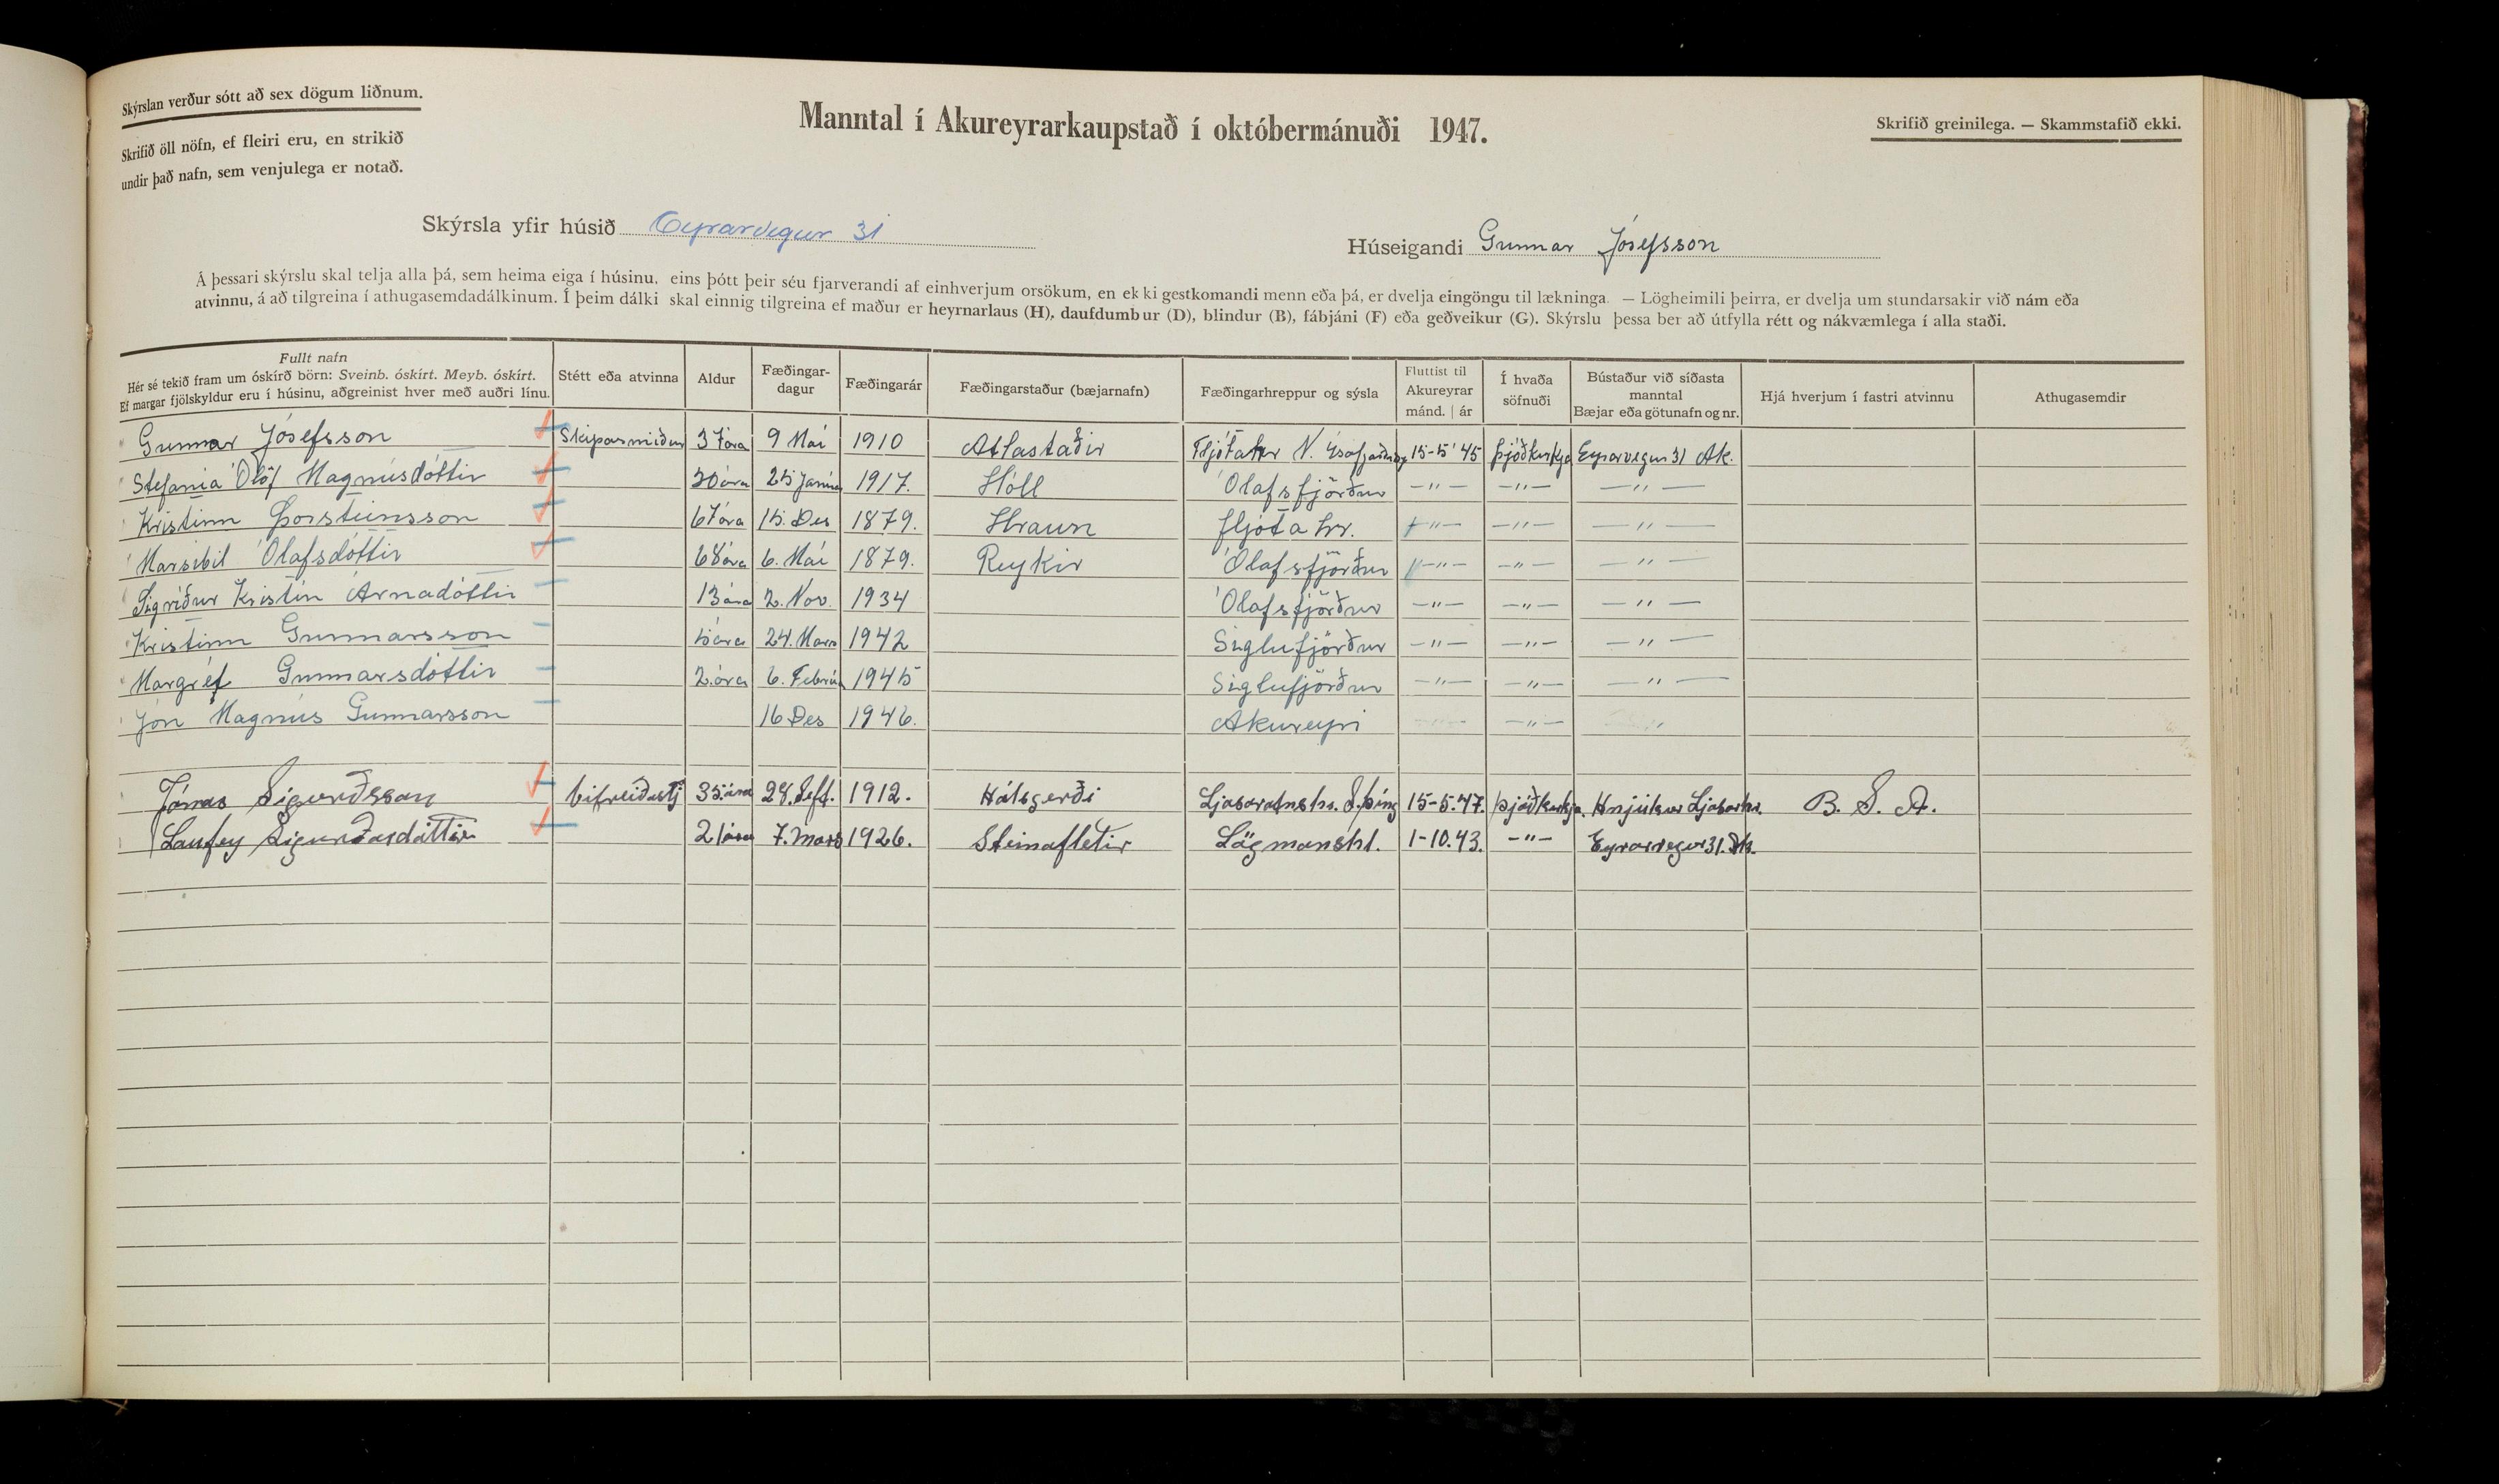 Skýrslan verður sótt að sex dögum liðnum.
Skrifið öll nöfn, ef fleiri eru, en strikið
undir það nafn, sem venjulega er notað.
Manntal í Akureyrarkaupstað í októbermánuði 1947.
Skrifið greinilega. — Skammstafið ekki.
Skýrsla yfir húsið Eyrarvegur 31
Húseigandi Gunnar Jósefsson
Á þessari skýrslu skal telja alla þá, sem heima eiga í húsinu, eins þótt þeir séu fjarverandi af einhverjum orsökum, en ekki gestkomandi menn eða þá, er dvelja eingöngu til lækninga. — Lögheimili þeirra, er dvelja um stundarsakir við nám eða
atvinnu, á að tilgreina í athugasemdadálkinum. Í þeim dálki skal einnig tilgreina ef maður er heyrnarlaus (H), daufdumbur (D), blindur (B), fábjáni (F) eða geðveikur (G). Skýrslu þessa ber að útfylla rétt og nákvæmlega í alla staði.
Fullt nafn
Hér sé tekið fram um óskírð börn: Sveinb. óskírt. Meyb. óskírt.
Ef margar fjölskyldur eru í húsinu, aðgreinist hver með auðri línu.
Stétt eða atvinna
Aldur
Fæðingar-
dagur
Fæðingarár
Fæðingarstaður (bæjarnafn)
Fæðingarhreppur og sýsla
Fluttist til
Akureyrar
mánd. | ár
Í hvaða
söfnuði
Bústaður við síðasta
manntal
Bæjar eða götunafn og nr.
Hjá hverjum í fastri atvinnu
Athugasemdir
Gunnar Jósefsson Skipasmiður 37 ára 9 Maí 1910 Atlastaðir Fljótahr N. Ísafjarðarsy 15-5 '45 þjóðkirkja Eyrarvegur 31 Ak.
Stefanía Ólöf Magnúsdóttir 30 ára 25 Janúar 1917. Hóll Ólafsfjörður —"— —"— —"—
Kristinn Þorsteinsson 67 ára 15. Des 1879. Hraun fljóta hr. —"— —"— —"—
Marsibil Ólafsdóttir 68 ára 6. Maí 1879. Reykir Ólafsfjörður —"— —"— —"—
Sigríður Kristín Árnadóttir 13 ára 2. Nov. 1934 Ólafsfjörður —"— —"— —"—
Kristinn Gunnarsson 5 ára 24. Mars 1942 Siglufjörður —"— —"— —"—
Margrét Gunnarsdóttir 2. ára 6. Febrúar 1945 Siglufjörður —"— —"— —"—
Jón Magnús Gunnarsson 16 Des 1946. Akureyri —"—
Jónas Sigurðsson bifreiðastj 35 ára 28. Sept. 1912. Hálsgerði Ljósavatnshr. S. þing 15-5.47. þjóðkirkja. Hnjúkur Ljósavhr. B. S. A.
Laufey Sigurðardóttir 21 ára 7. Mars 1926. Steinafletir Lögmanshl. 1-10.43. —"— Eyrarvegur 31. Ak.